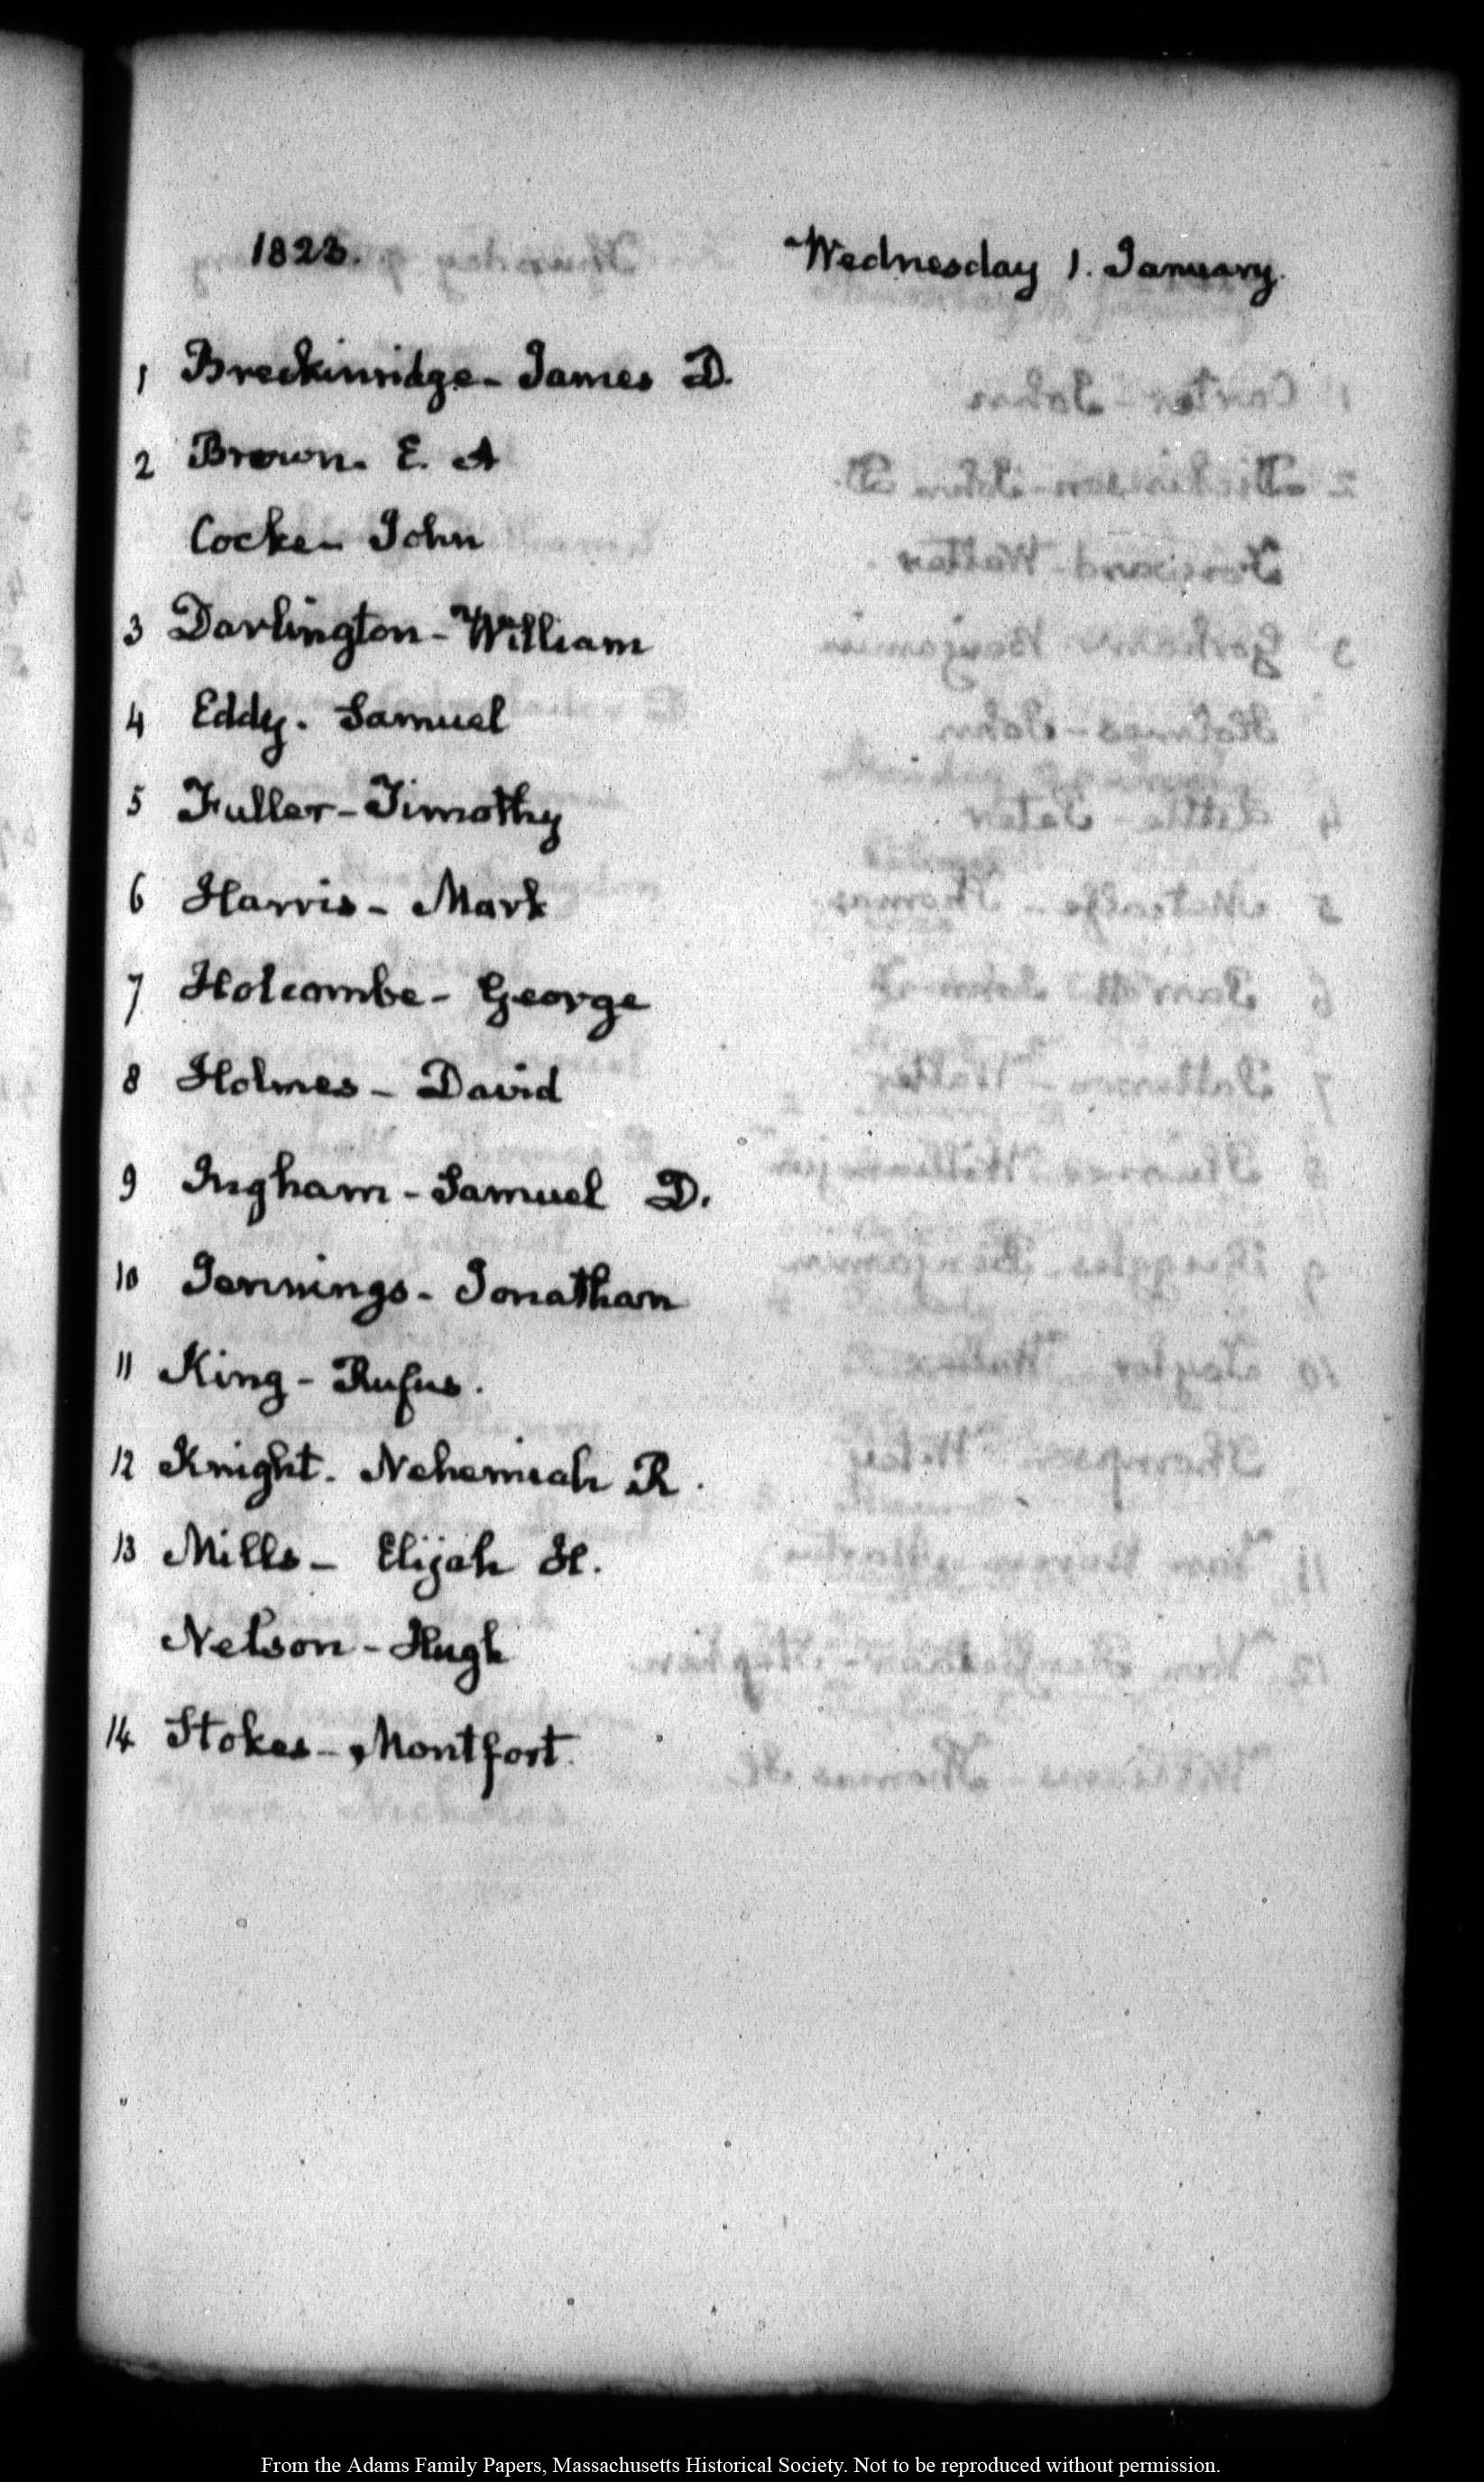 1823. Wednesday 1. January.
1 Breckinridge - James D.
2 Brown. E. A
Cocke - John
3 Darlington - William
4 Eddy. Samuel
5 Fuller - Timothy
6 Harris - Mark
7 Holcombe - George
8 Holmes - David
9 Ingham - Samuel D.
10 Jennings - Jonathan
11 King - Rufus.
12 Knight. Nehemiah R.
13 Mills - Elijah H.
Nelson - Hugh
14 Stokes - Montfort.
From the Adams Family Papers, Massachusetts Historical Society. Not to be reproduced without permission.